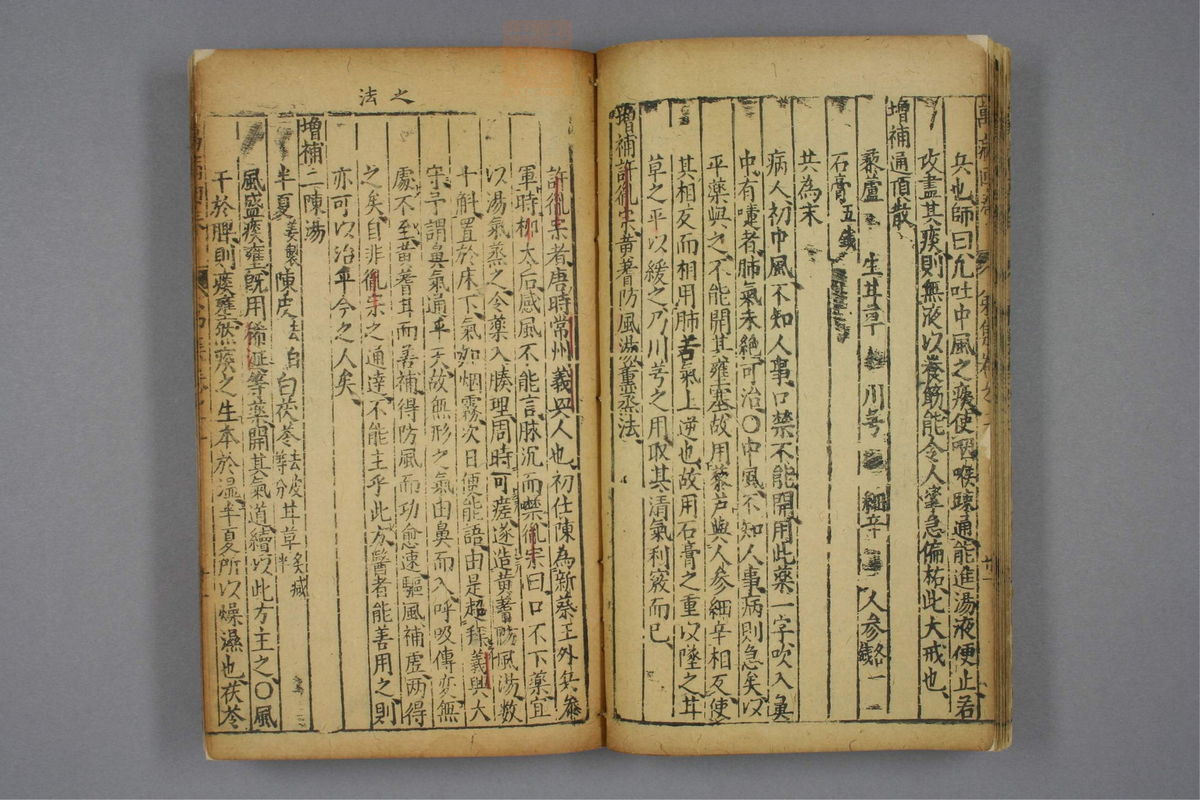 兵也師曰凢吐中風之痰使咽喉疎通能進湯液便止若
攻盡其痰則無液以養筋能令人攣急偏枯此大戒也
增補通頂散
藜蘆 生甘草 川芎 細辛 人參各一錢
石膏五錢
共為末
病人初中風不知人事口禁不能開用此藥一字吹入鼻
中有嚏者肺氣未絶可治〇中風不知人事病則急矣以
平藥與之不能開其壅塞故用藜芦與人參細辛相反使
其相反而相用肺苦氣上逆也故用石膏之重以墜之甘
草之平以緩之乃川芎之用取其清氣利竅而已
增補許胤宗黃蓍防風湯薫蒸法
許胤宗者唐時常州義興人也初任陳為新蔡王外兵參
軍時柳太后感風不能言脉沉而噤胤宗曰口不下藥宜
以湯氣蒸之令藥入腠理周時可瘥遂造黃蓍防風湯数
十斛置於床下氣如烟霧次日便能語由是超拜義興大
守予謂鼻氣通乎天故無形之氣由鼻而入呼吸傳変無
處不至黄蓍甘而善補得防風而功愈速驅風補虚两得
之矣自非胤宗之通達不能主乎此方醫者能善用之則
亦可以治乎今之人矣
之法
增補二陳湯
半夏姜製 陳皮去白 白茯苓去皮等分 甘草炙減半
風盛痰壅既用稀涎等藥開其氣道續以此方主之〇風
干於脾則痰壅然痰之生本於湿半夏所以燥濕也茯苓